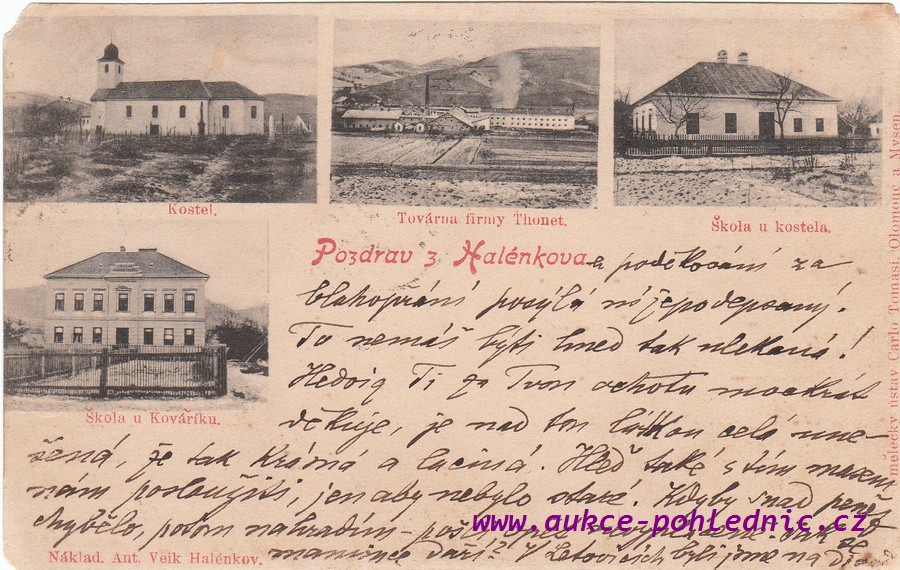 Kostel.
Továrna firmy Thonet.
Škola u kostela.
Škola u Kovaříku.
Pozdrav z Halénkova a poděkování za
blahopřání posýlá níjepodepsaný.
To nemáš býti hned tak ulekaná!
Hedvig Ti za Tvou ochotu mockrát
děkuje, je nad tou látkou cela une-
šená, že tak krásná a laciná. Hleď také s tím mazem
nám posloužiti, jen aby nebylo staré. Kdyby snad peněz
chybělo, potom nahradím
mamince daří? V Letovicích byli jsme na
Náklad. Ant. Veik Halénkov.
umělecký ústav Carlo Tomasi, Olomouc a Mysen
www.aukce-pohlednic.cz